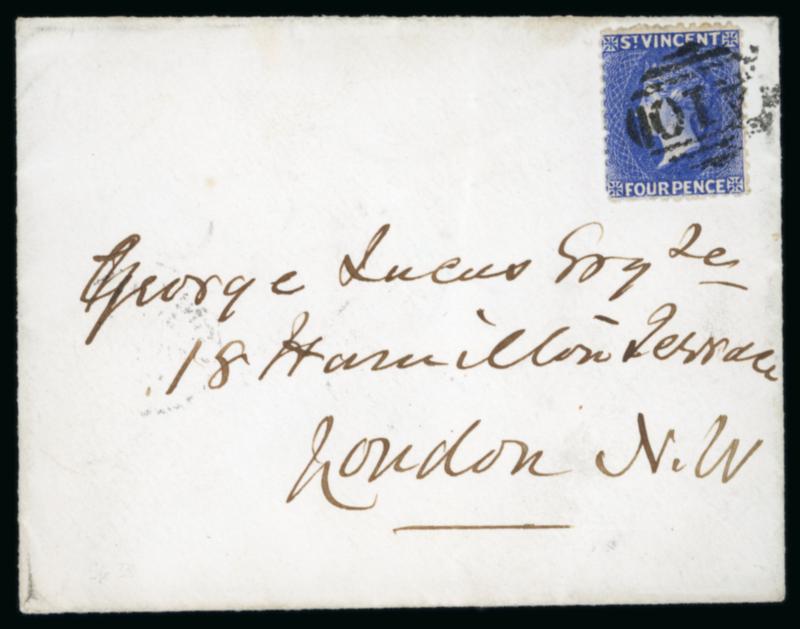 ST VINCENT
A10
FOUR PENCE
George Lucas Esqre &c
18 Hamilton Terrace
London N.W